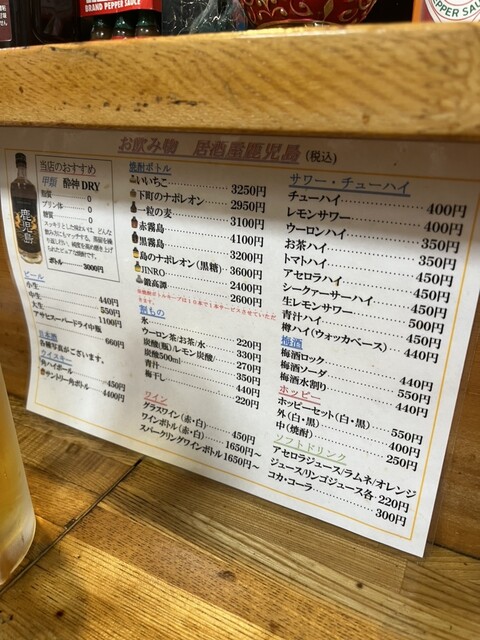 BRAND PEPPER SAUCE
PEPPER SAU
お飲み物 居酒屋鹿児島 (税込)
当店のおすすめ
甲類 酔神 DRY
脂質 0
プリン体 0
糖質 0
ボトル 3000円
鹿児島
ビール
小生 440円
中生 550円
大生 1100円
アサヒスーパードライ中瓶 660円
日本酒
各種写真がございます。
ウイスキー
角ハイボール 450円
サントリー角ボトル 4400円
焼酎ボトル
いいちこ 3250円
下町のナポレオン 2950円
一粒の麦 3100円
赤霧島 4100円
黒霧島 3200円
島のナポレオン(黒糖) 3600円
JINRO 2400円
鍛高譚 2600円
割もの
氷 220円
ウーロン茶/お茶/水 330円
炭酸(瓶)/レモン炭酸/ 270円
炭酸500ml 350円
青汁 440円
梅干し 220円
ワイン
グラスワイン(赤・白) 450円
ワインボトル(赤・白) 1650円~
スパークリングワインボトル 1650円~
サワー・チューハイ
チューハイ 400円
レモンサワー 400円
ウーロンハイ 350円
お茶ハイ 350円
トマトハイ 450円
アセロラハイ 450円
シークァーサーハイ 450円
生レモンサワー 500円
青汁ハイ 450円
樽ハイ(ウォッカベース) 440円
梅酒
梅酒ロック 440円
梅酒ソーダ 550円
梅酒水割り 440円
ホッピー
ホッピーセット(白・黒) 550円
外(白・黒) 400円
中(焼酎) 250円
ソフトドリンク
アセロラジュース/ラムネ/オレンジ
ジュース/リンゴジュース各 220円
コカ・コーラ 300円